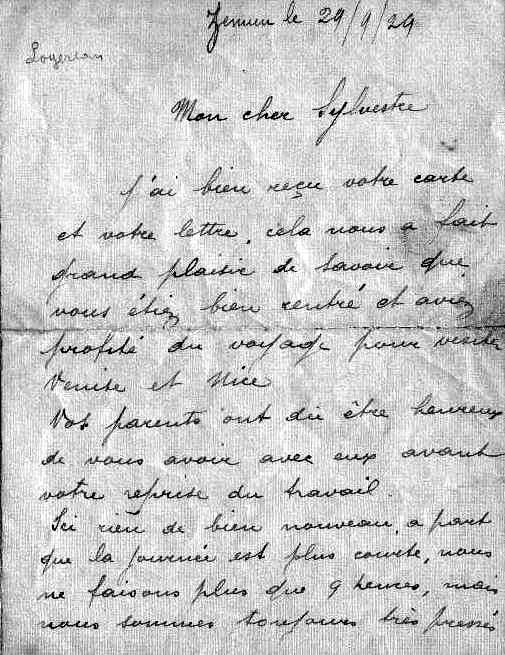 Zemun le 29/9/29
Mon cher Sylvestre
J'ai bien reçu votre carte
et votre lettre, cela nous a fait
grand plaisir de savoir que
vous étiez bien rentré et aviez
profité du voyage pour visiter
Venise et Nice
Vos parents ont dû être heureux
de vous avoir avec eux avant
votre reprise du travail.
Ici rien de bien nouveau, a part
que la journée est plus courte, nous
ne faisons plus que 9 heures, mais
nous sommes toujours très pressés